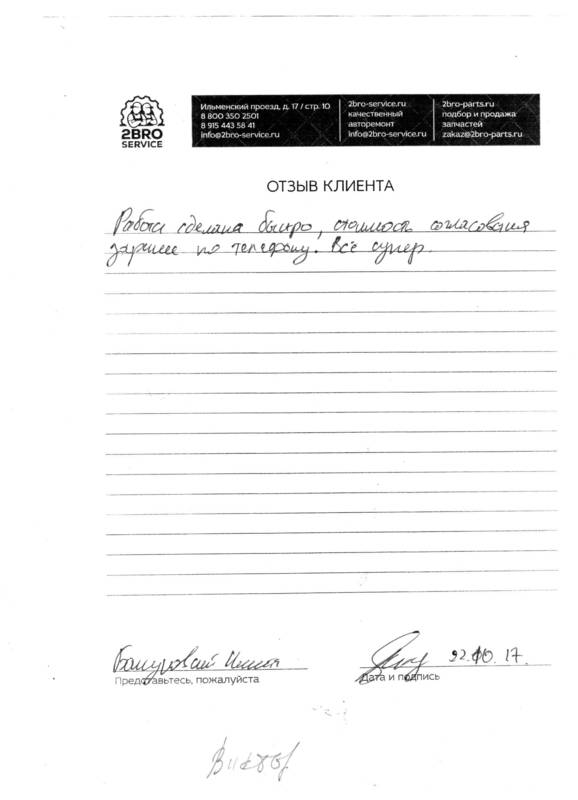 2BRO
SERVICE
Ильменский проезд, д. 17 / стр. 10
8 800 350 2501
8 915 443 58 41
info@2bro-service.ru
2bro-service.ru
качественный
авторемонт
info@2bro-service.ru
2bro-parts.ru
подбор и продажа
запчастей
zakaz@2bro-parts.ru
ОТЗЫВ КЛИЕНТА
Работа сделана быстро, стоимость согласована
заранее по телефону. Всё супер.
Представьтесь, пожалуйста
22.10.17.
Дата и подпись
Виктор